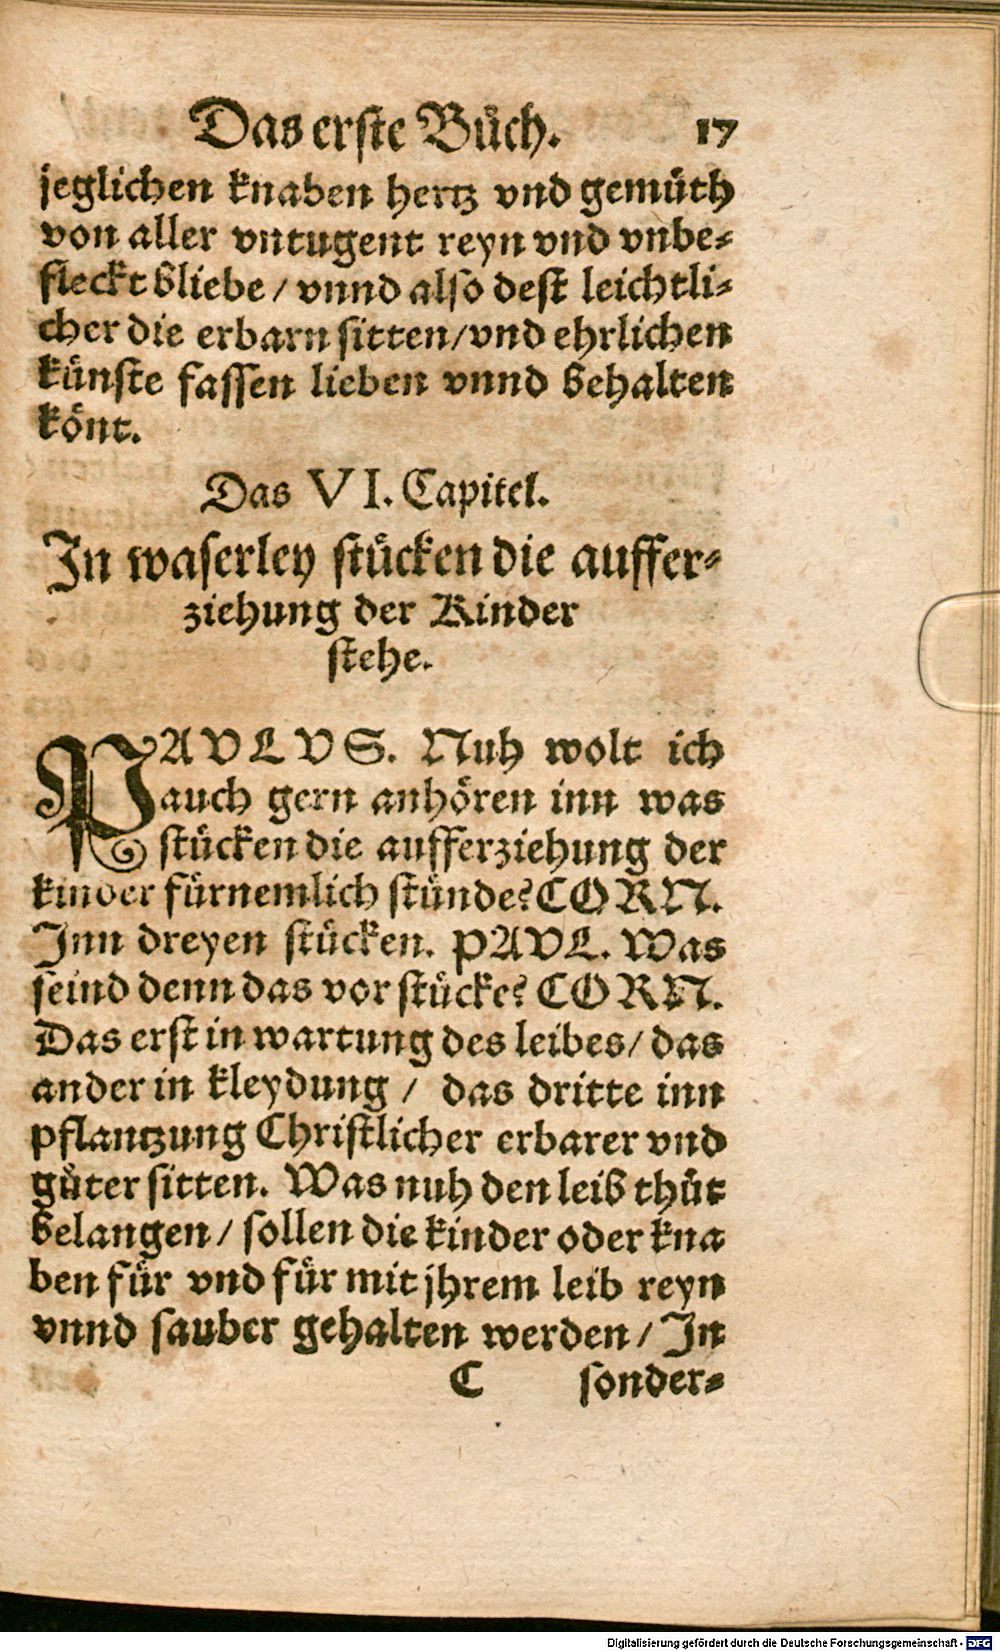 Das erſte Bůch. 17
jeglichen knaben hertz vnd gemůth
von aller vntugent reyn vnd vnbe⸗
fleckt bliebe / vnnd alſo deſt leichtli⸗
cher die erbarn ſitten / vnd ehrlichen
künſte faſſen lieben vnnd behalten
könt.
Das VI. Capitel.
In waſerley ſtücken die auffer⸗
ziehung der Kinder
ſtehe.
PAVLVS. Nuh wolt ich
auch gern anhören inn was
ſtücken die aufferziehung der
kinder fürnemlich ſtünde? CORN.
Inn dreyen ſtücken. PAVL. Was
ſeind denn das vor ſtücke? CORN.
Das erſt in wartung des leibes / das
ander in kleydung / das dritte inn
pflantzung Chriſtlicher erbarer vnd
gůter ſitten. Was nuh den leib thůt
belangen / ſollen die kinder oder kna
ben für vnd für mit jhrem leib reyn
vnnd ſauber gehalten werden / In
C ſonder⸗
Digitalisierung gefördert durch die Deutsche Forschungsgemeinschaft - DFG